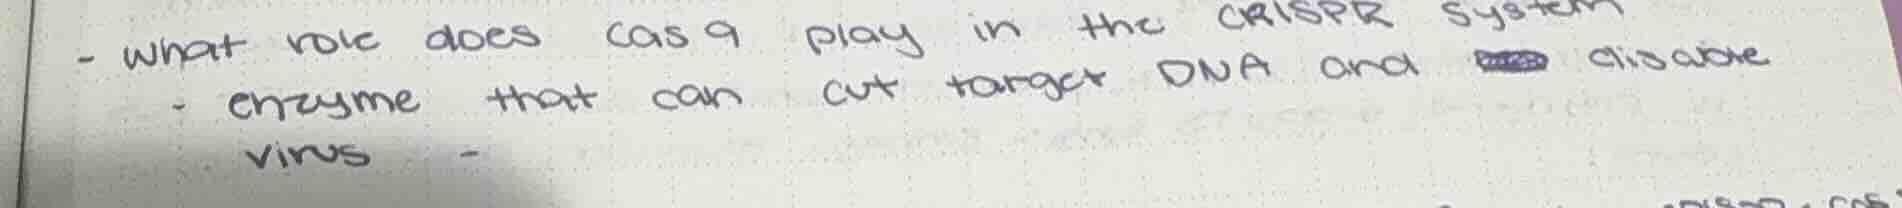 - what role does cas9 play in the CRISPR system
- enzyme that can cut target DNA and disable
virus -